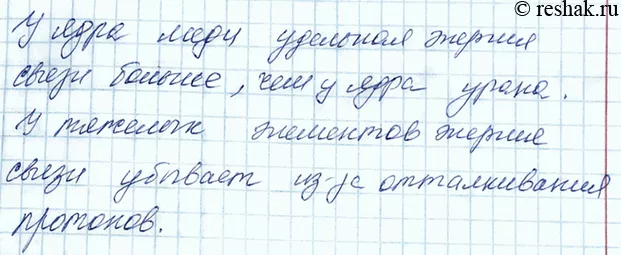 © reshak.ru
У ядра меди удельная энергия
связи больше, чем у ядра урана.
У тяжелых элементов энергия
связи убывает из-за отталкивания
протонов.